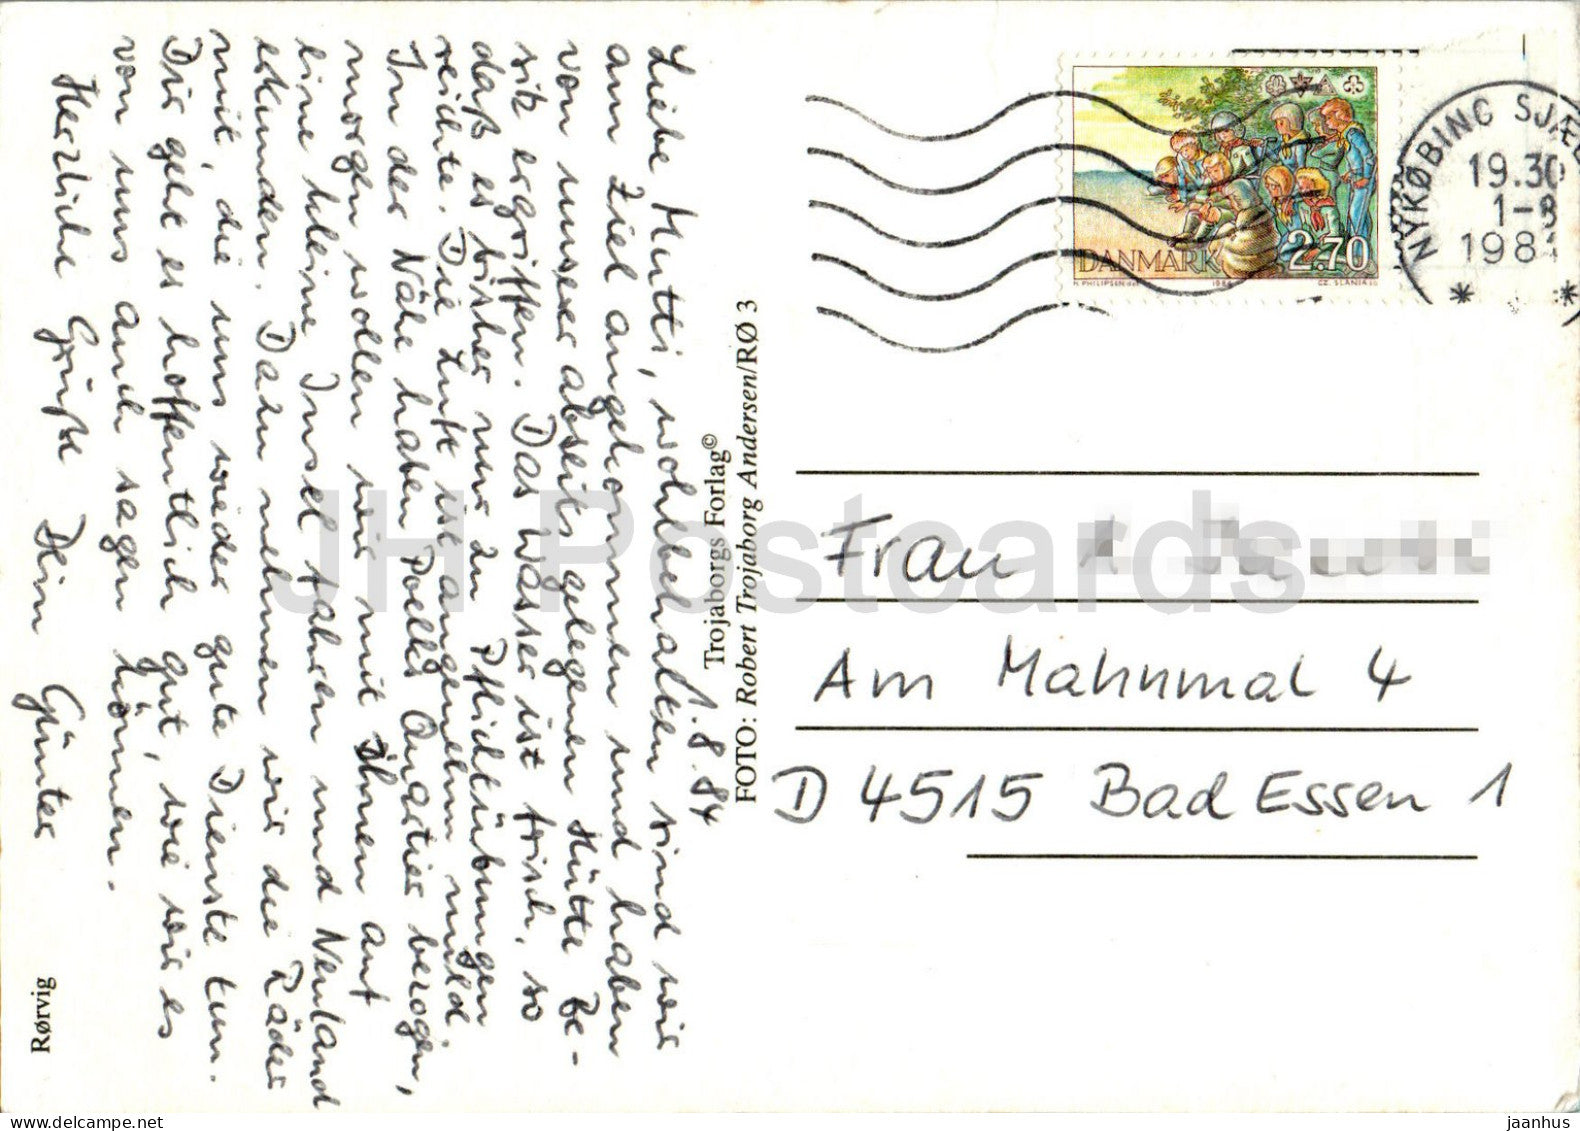 1.8.84
Liebe Mutti, wohlbehalten sind wir
am Ziel angekommen und haben
von unserer abseits gelegenen Hütte Be-
sitz ergriffen. Das Wasser ist frisch, so
daß es bisher nur zu Pflichtübungen
reichte. Die Luft ist angenehm mild.
In der Nähe haben Poells Quartier bezogen,
morgen wollen wir mit ihnen auf
eine kleine Insel fahren und Neuland
erkunden. Dazu nehmen wir die Räder
mit, die uns wieder gute Dienste tun.
Dir geht es hoffentlich gut, wie wir es
von uns auch sagen können.
Herzliche Grüße Dein Günter
Rørvig
Trojaborgs Forlag©
FOTO: Robert Trojaborg Andersen/RØ 3
DANMARK 2.70
H. PHILIPSEN del. 1984 CZ. SLANIA sc
NYKØBING SJÆL
19.30
1-8
198
* *
Frau
Am Mahnmal 4
D 4515 Bad Essen 1
JH Postcards
jaanhus